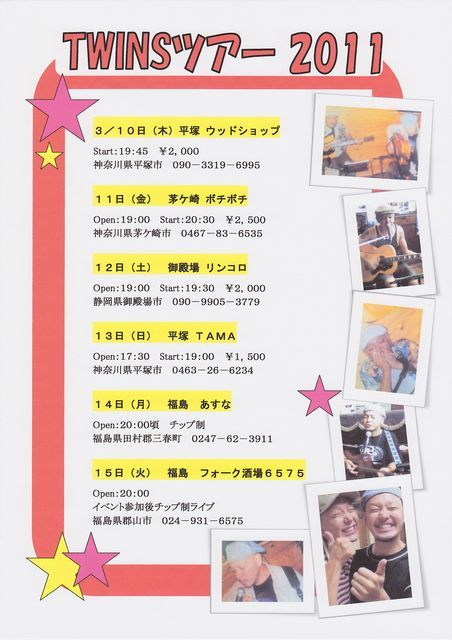 TWINSツアー 2011
3/10日(木)平塚 ウッドショップ
Start:19:45 ¥2,000
神奈川県平塚市 090-3319-6995
11日(金) 茅ケ崎 ボチボチ
Open:19:00 Start:20:30 ¥2,500
神奈川県茅ケ崎市 0467-83-6535
12日(土) 御殿場 リンコロ
Open:19:00 Start:19:30 ¥2,000
静岡県御殿場市 090-9905-3779
13日(日) 平塚 TAMA
Open:17:30 Start:19:00 ¥1,500
神奈川県平塚市 0463-26-6234
14日(月) 福島 あすな
Open:20:00頃 チップ制
福島県田村郡三春町 0247-62-3911
15日(火) 福島 フォーク酒場6575
Open:20:00
イベント参加後チップ制ライブ
福島県郡山市 024-931-6575